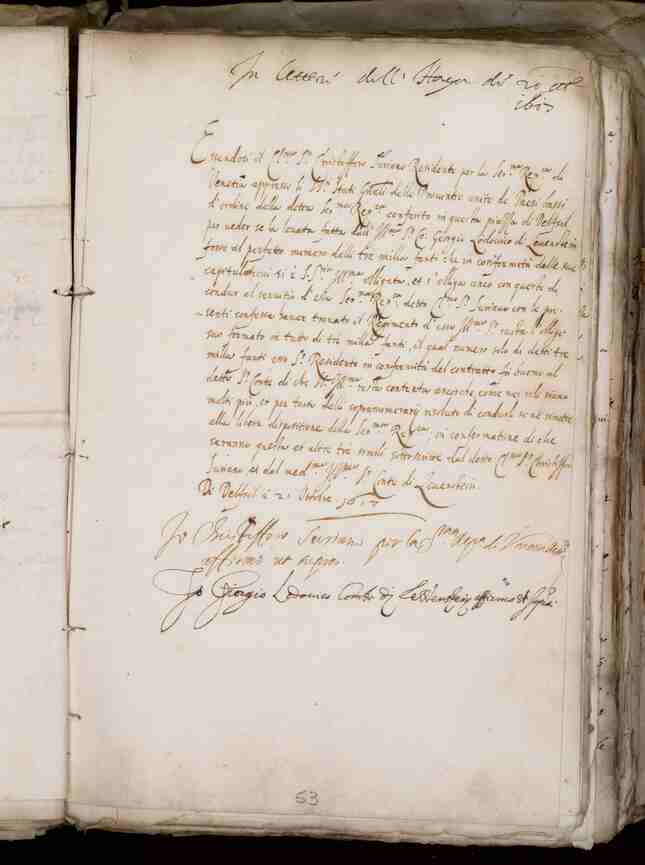 In lettere dell'Haya di 20 ottre
1617
Essendosi il Clmo Sr Christofforo Suriano Residente per la Sermo Repca di
Venetia appresso li SSri Stati Gñali delle Provintie unite de Paesi bassi
d'ordine della detta Serma Repca conferito in questa piazza di Delfzil
per veder se la levata fatta dall' Illmo Sr Co: Giorgio Lodovico di Levenstein
fosse al perfetto numero delli tre milla fanti che in conformità delle sue
capitulationi si è S. Sria Illma obligata, et s'obliga anco con questa di
condur al servitio d'essa Serma Repca, detto Clmo Sr Suriano con le pre-
senti confessa haver trovato il Regimento d'esso Illmo Sr conte l'obligo
suo formato in tutto di tre milla fanti, il qual numero solo di detti tre
milla fanti esso Sr Residente in conformità del contratto fa buono al
detto Sr Conte di che SS Illma resta contenta ancorche come nei roli siano
molti più, et per conto delli sopranumerarij resoluti di condursi se ne rimette
alla libera dispositione della Serma Repca; in confermatione di che
saranno questa et altre tre simili sottoscritte dal detto Clmo Sr Christofforo
Suriano et dal medmo Illmo Sr Conte di Levenstein.
Di Delfzil à 21 Ottobre 1617
Io Christofforo Suriano per la Serma Repca di Venetia
affermo ut supra.
Io Giorgio Lodovico Conte di Levenstein affermo ut supra.
53